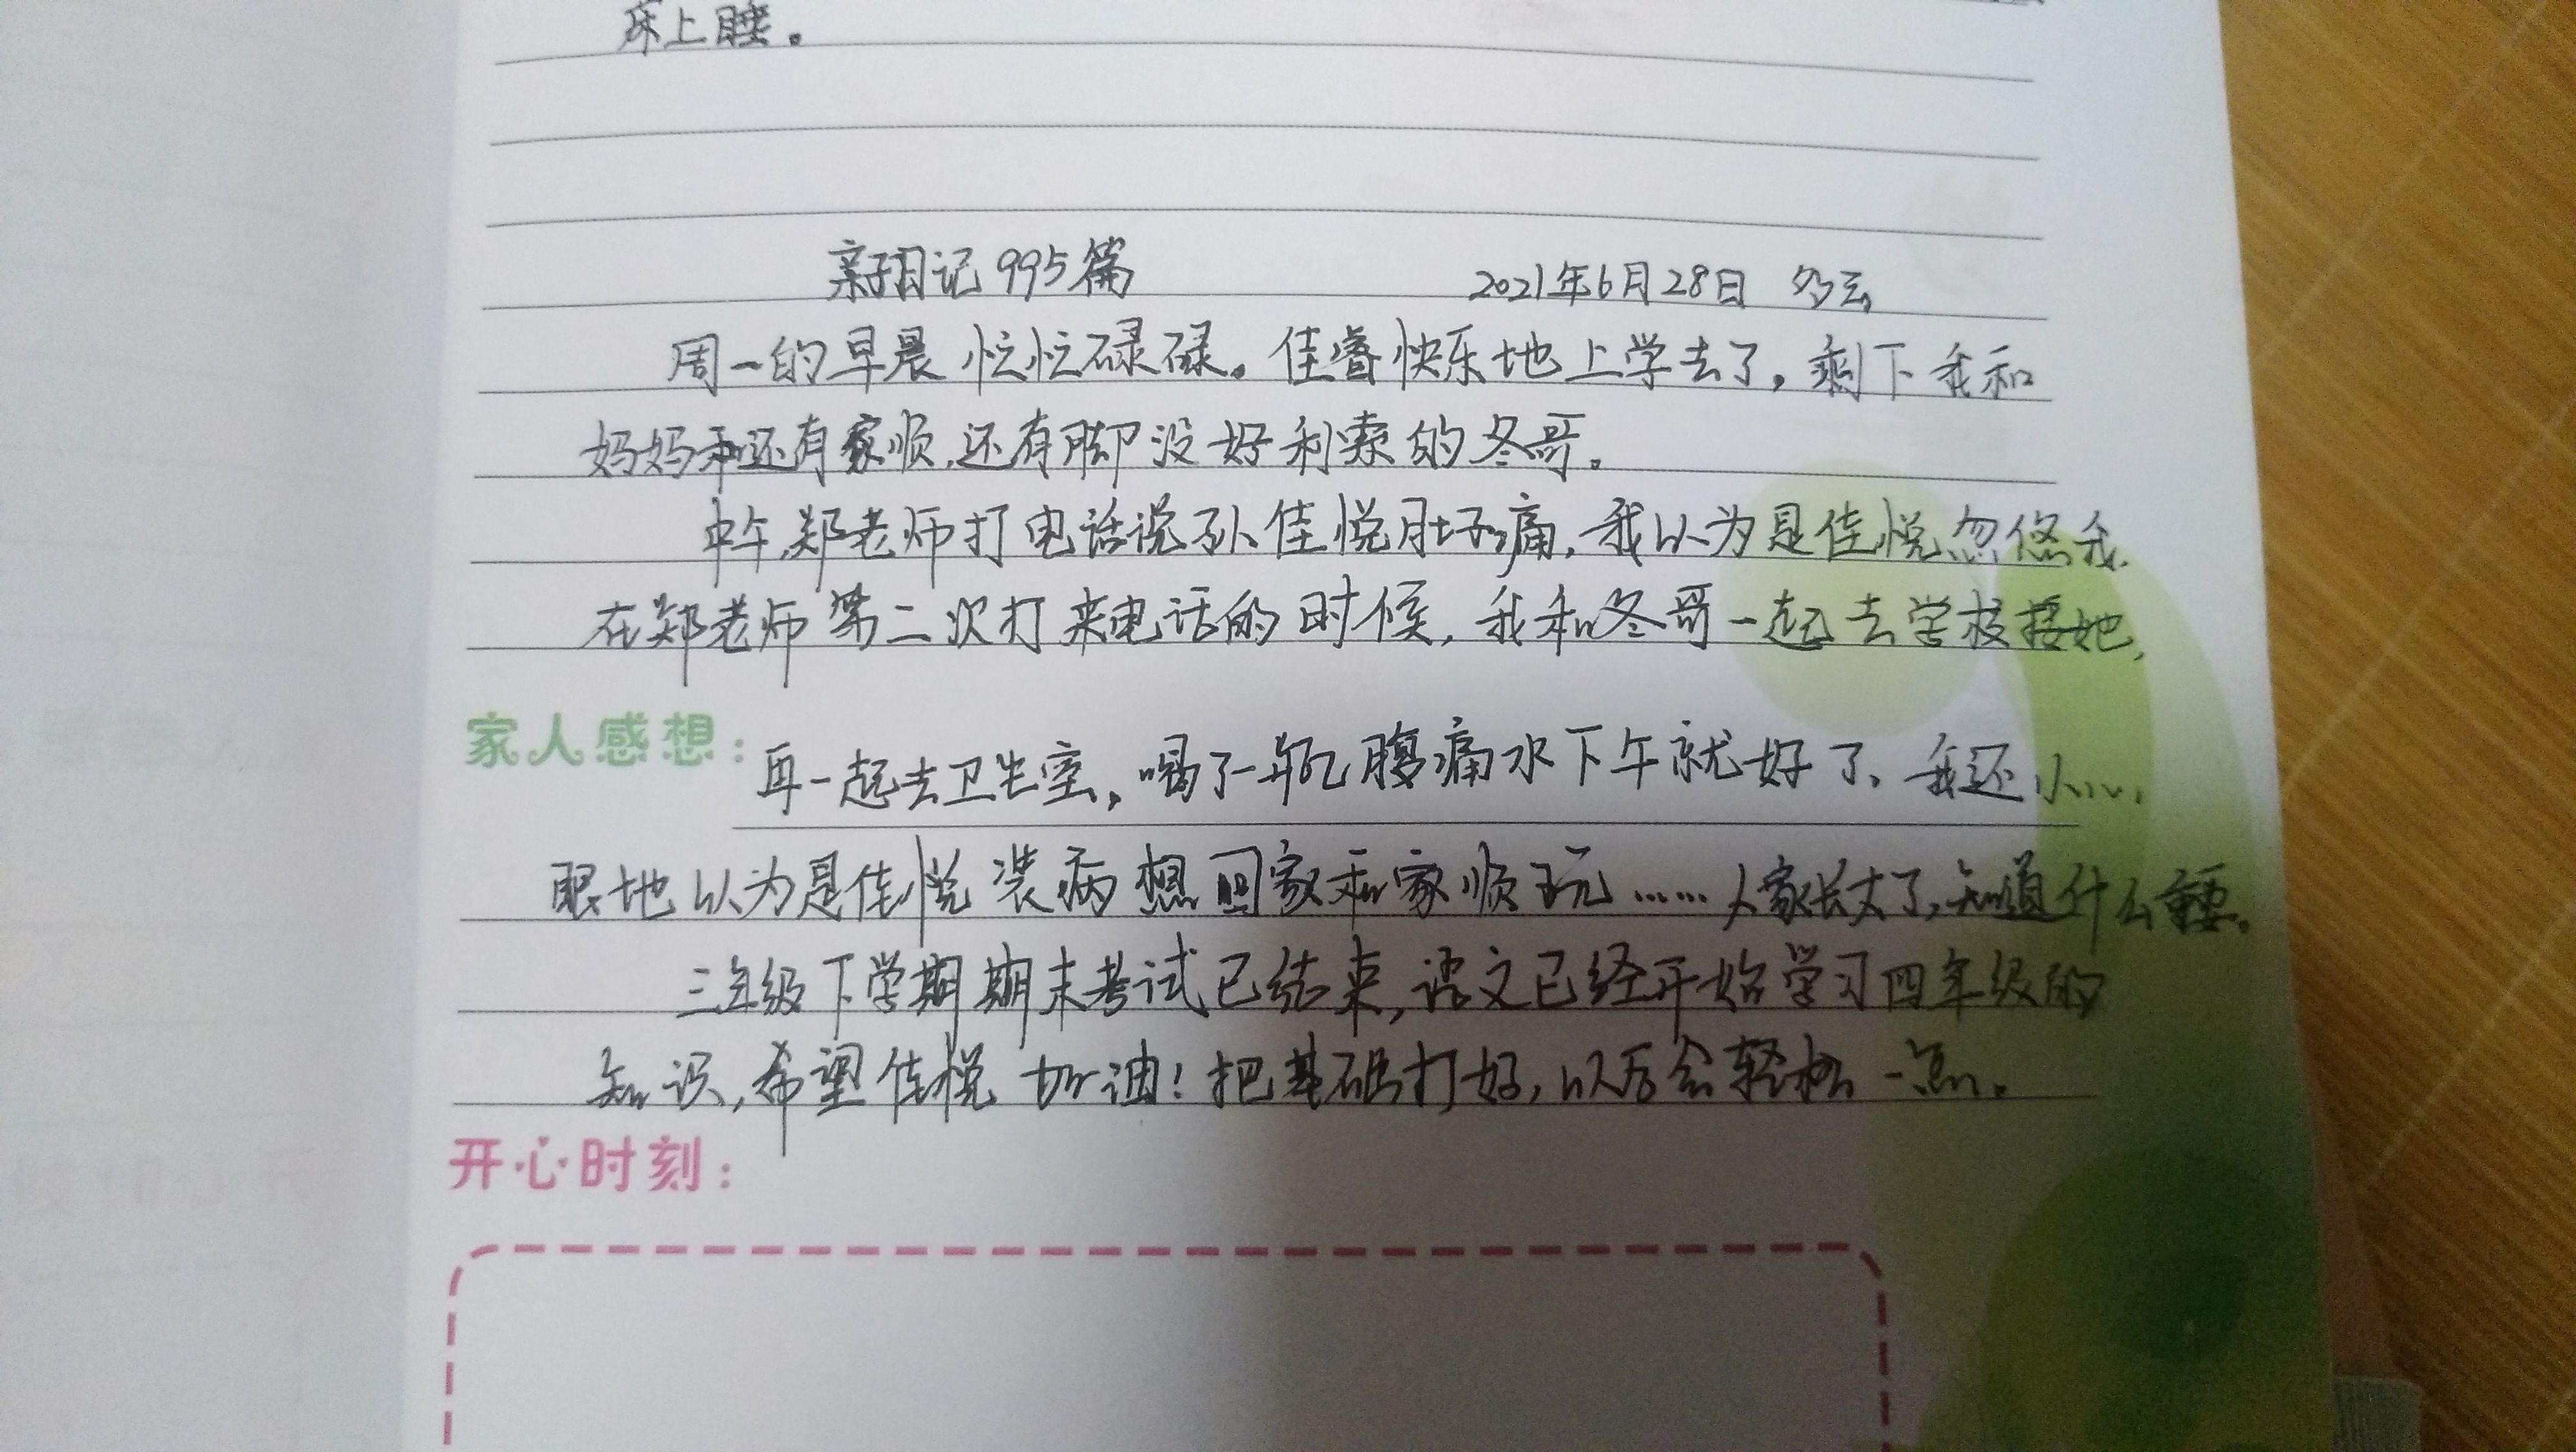 床上睡。
亲子日记995篇 2021年6月28日 多云
周一的早晨忙忙碌碌。佳睿快乐地上学去了,剩下我和
妈妈和还有家顺,还有脚没好利索的冬哥。
中午,郑老师打电话说孙佳悦肚子痛,我以为是佳悦忽悠我.
在郑老师第二次打来电话的时候,我和冬哥一起去学校接她,
家人感想:再一起去卫生室,喝了一瓶腹痛水下午就好了、我还小心
眼地以为是佳悦装病想回家和家顺玩……人家长大了,知道什么重要。
三年级下学期期末考试已结束,语文已经开始学习四年级的
知识,希望佳悦加油!把基础打好,以后会轻松一点。
开心时刻: